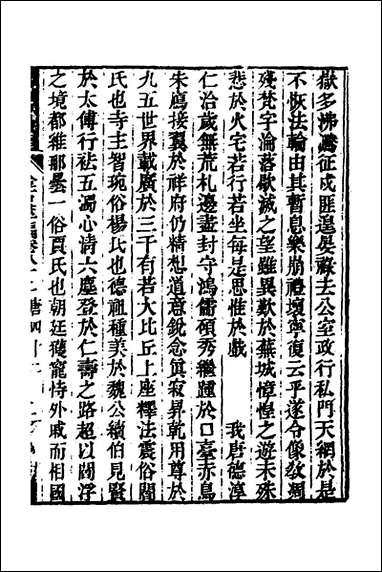 獄多怫鬱征戍匪遑矣祿去公室政行私門天網於是
不恢法輪由其暫息樂崩禮壞寧復云乎遂令像教凋
殘梵宇淪落歇滅之望雖異歎於蕪城憧憧之遊未殊
悲於火宅若行若坐每是思惟於戲　我唐德淳
仁洽歲無荒札邊盡封守鴻儒碩秀繼踵於口臺赤烏
朱鴈接翼於祥府仍精想道意銳念眞寂昇乾用尊於
九五世界載廣於三千有若大比丘上座釋法震俗閻
氏也寺主智琬俗楊氏也德祖種美於魏公續伯見賢
於太傅行袪五濁心清六塵登於仁壽之路超以閻浮
之境都維那曇一俗賈氏也朝廷穫寵恃外戚而相國